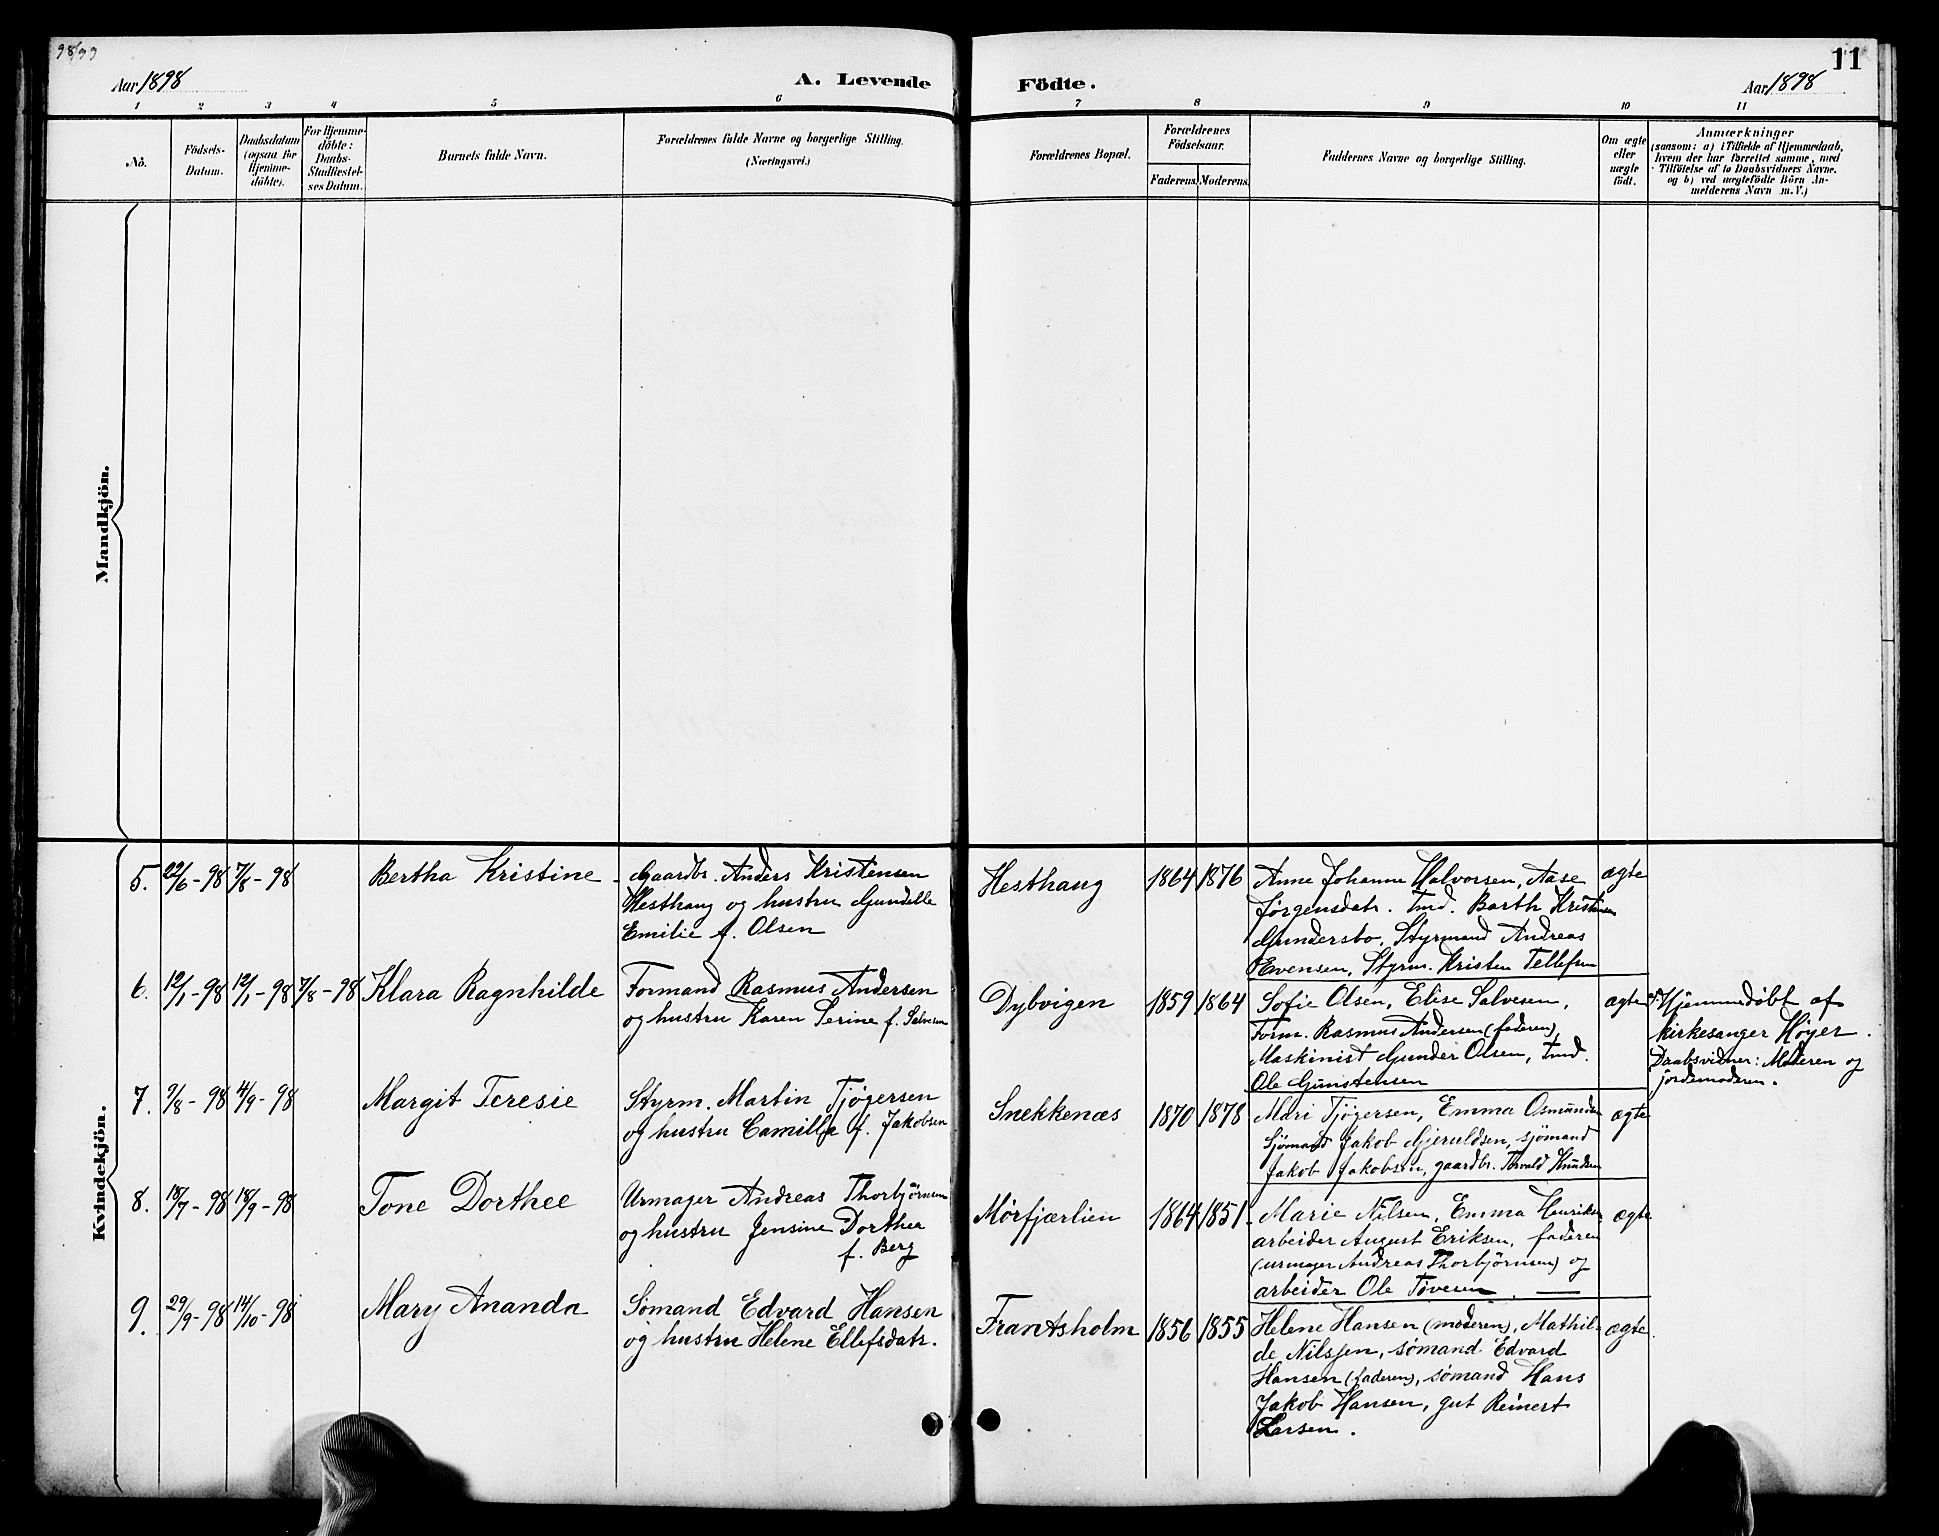 98/99
11
Aar 1898
A. Levende
Födte.
Aar 1898
1 2 3 4 5 6 7 8 9 10 11
No.
Födsels-
Datum.
Daabsdatum
(ogsaa for
Hjemme-
döbte).
For Hjemme-
döbte:
Daabs-
Stadfæstel-
ses Datum.
Barnets fulde Navn.
Forældrenes fulde Navne og borgerlige Stilling.
(Næringsvei.)
Forældrenes Bopæl.
Forældrenes
Födselsaar.
Faderens. Moderens.
Faddernes Navne og borgerlige Stilling.
Om ægte
eller
uægte
födt.
Anmærkninger
(saasom: a) i Tilfælde af Hjemmedaab,
hvem der har forrettet samme, med
Tilföielse af to Daabsvidners Navne.
og b) ved uægtefödte Börn An-
melderens Navn m.V.)
Mandkjön.
Kvindekjön.
5. 22/6-98 7/8-98
Bertha Kristine
Gaardbr. Anders Kristensen
Hesthaug og hustru Gundelle
Emilie f. Olsen
Hesthaug
1864 1876
Anne Johanne Halvorsen, Aase
Jørgensdatr. Tmd. Barth Kristensen
Gundersbo, Styrmand Andreas
Evensen, Styrm. Kristen Tellefsen
ægte
6. 12/1-98 12/1-98 7/8-98
Klara Ragnhilde
Formand Rasmus Andersen
og hustru Karen Serine f. Salvesen
Dybvigen
1859 1864
Sofie Olsen, Elise Salvesen,
Form. Rasmus Andersen (faderen)
Maskinist Gunder Olsen, Tmd.
Ole Gunstensen
ægte
Hjemmedøbt af
kirkesanger Høyer.
Daabsvidner: Moderen og
jordemoderen.
7. 9/8-98 4/9-98
Margit Teresie
Styrm. Martin Tjøgersen
og hustru Camilla f. Jakobsen
Snekkenæs
1870 1878
Mari Tjøgersen, Emma Osmundsen
Sjømand Jakob Gjeruldsen, sjømand
Jakob Jakobsen, gaardbr. Torvald Knudsen
ægte
8. 18/7-98 18/9-98
Tone Dorthee
Urmager Andreas Thorbjørnsen
og hustru Jensine Dorthea
f. Berg
Mørfjærlien
1864 1851
Marie Nilsen, Emma Henriksen
arbeider August Eriksen, faderen
(urmager Andreas Thorbjørnsen) og
arbeider Ole Tovesen.
ægte
9. 29/9-98 14/10-98
Mary Ananda
Sømand Edvard Hansen
og hustru Helene Ellefsdatr.
Frantsholm
1856 1855
Helene Hansen (moderen), Mathil-
de Nilssen, sømand Edvard
Hansen (faderen), sømand Hans
Jakob Hansen, gut Reinert
Larsen.
ægte.